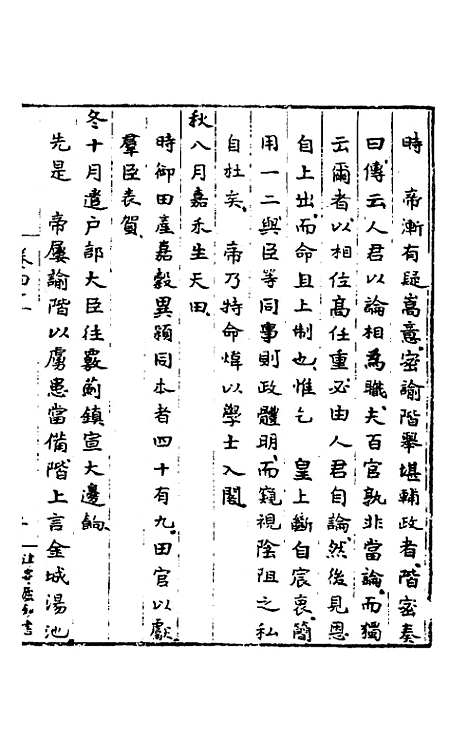 時　帝漸有疑嵩意密諭階舉堪輔政者階密奏
曰傳云人君以論相為職夫百官孰非當論而獨
云爾者以相位高任重必由人君自論然後見恩
自上出而命且上制也惟乞　皇上斷自宸衷簡
用一二與臣等同事則政體明而窺視陰阻之私
自杜矣　帝乃特命煒以學士入閣
秋八月嘉禾生天田
時御田產嘉穀異穎同本者四十有九田官以獻
羣臣表賀
冬十月遣户部大臣往覈薊鎮宣大邊餉
先是　帝屢諭階以虜患當備階上言金城湯池